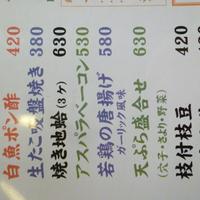 420
枝付枝豆
630
天ぷら盛合せ
(穴子・さより・野菜)
若鶏の唐揚げ
ガーリック風味
530
アスパラベーコン
630
焼き地蛤(3ヶ)
380
生たこ吸盤焼き
420
白魚ポン酢